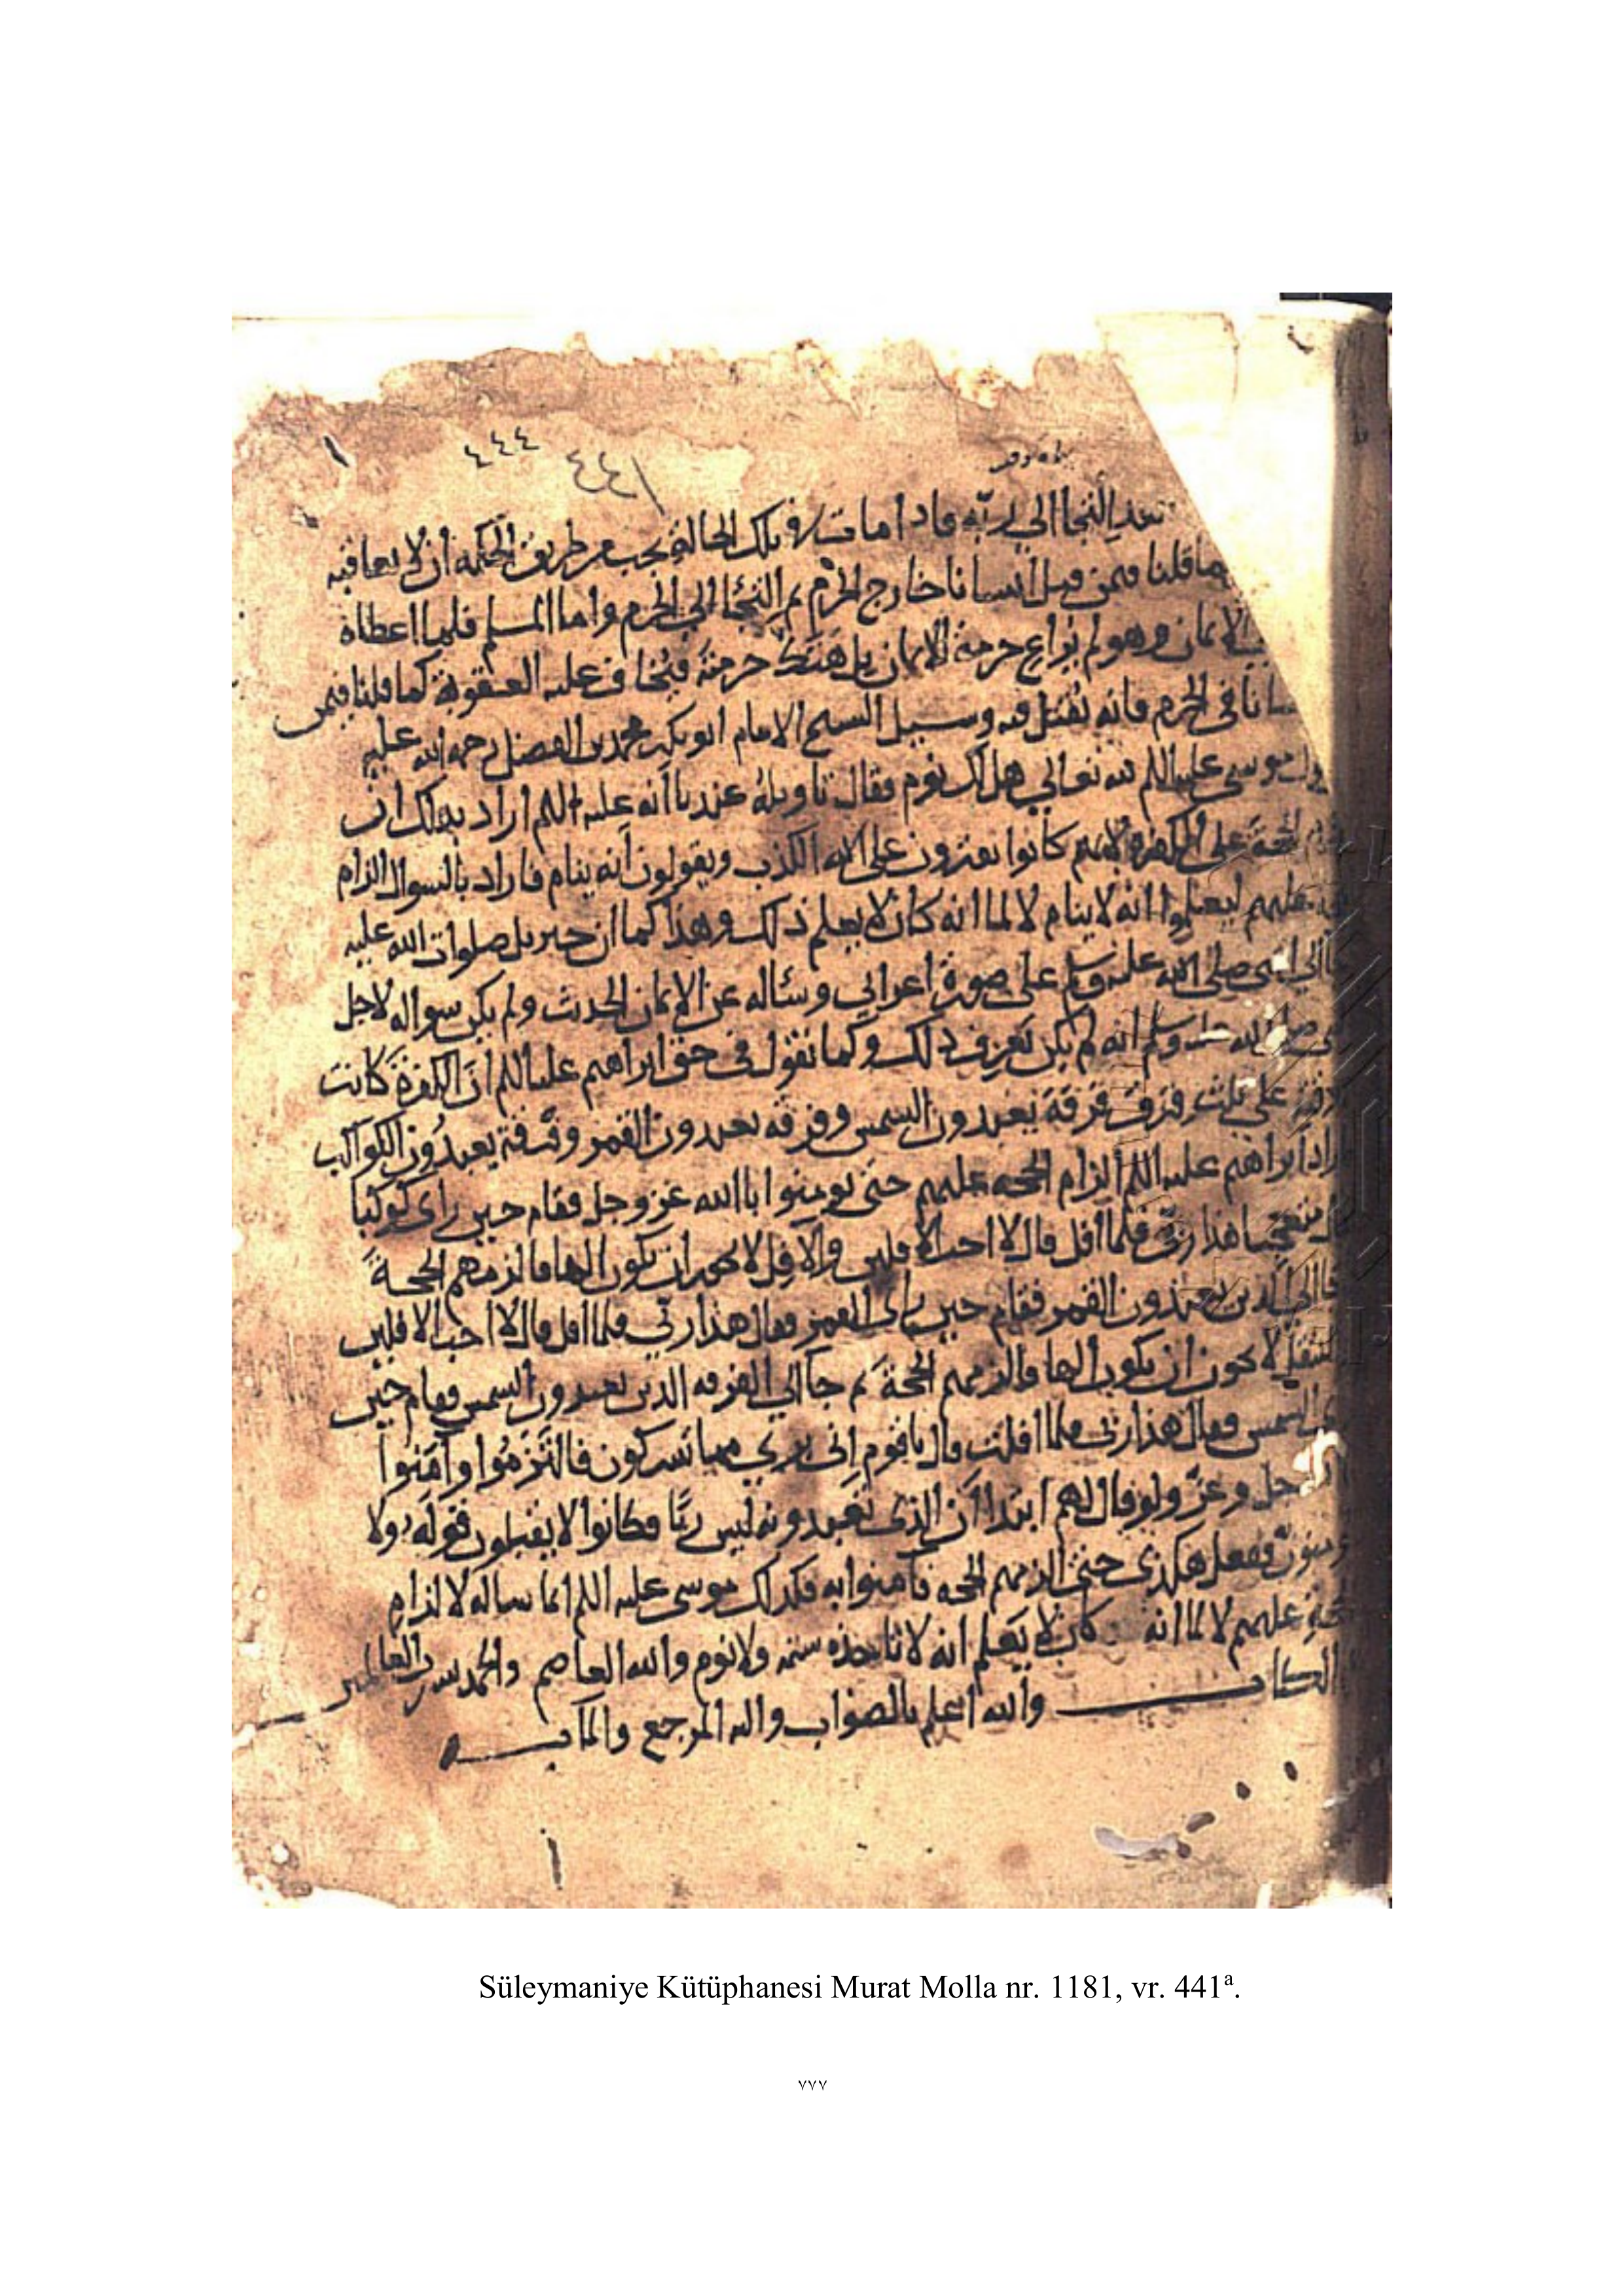 ٤٤٤
٤٤١
بعد التجا الى ربه فاذا مات في تلك الحالة يجب عن طريق الحكمة ان لا يعاقبه
ما قلنا فيمن قتل انسانا خارج الحرم ثم التجئا الى الحرم واما المسلم فلما اعطاه
الايمان وهو لم يراع حرمة الايمان بل هتك حرمته فيخاف عليه العقوبة كما قلنا فيمن
سانا في الحرم فانه يقتل فيه وسيل الشيخ الامام ابو بكر محمد بن الفضل رحمه الله عليه
موسى عليه السلم لله تعالى هل لك نوم فقال تاويله عندنا انه عليه السلم اراد بذلك ان
الحجة على الكفرة لانهم كانوا يفترون على الله الكذب ويقولون انه ينام فاراد بالسوال الزام
عليهم ليعلموا انه لا ينام لا لما انه كان لا يعلم ذلك وهذا كما ان جبريل صلوات الله عليه
الى النبي صلى الله عليه وسلم على صورة اعرابي وسئاله عن الايمان الحدث ولم يكن سواله لاجل
وسلم انه لم يكن يعرف ذلك وكما نقول في حق ابراهيم عليه السلم ان الكفرة كانت
على ثلث فرق فرقة يعبدون الشمس وفرقه يعبدون القمر وفرقة يعبدون الكواكب
ابراهيم عليه السلم الزام الحجه عليهم حتى يومنوا باالله عز وجل فقام حين راى كوكبا
هذا ربي فلما افل قال لا احب الافلين والافل لا يجوز ان يكون الها فالزمهم الحجة
الذين يعبدون القمر فقام حين راى القمر فقال هذا ربي فلما افل قال لا احب الافلين
لا يجوز ان يكون الها والزمهم الحجة ثم جا الى الفرقه الذين يعبدون الشمس فقام حين
الشمس فقال هذا ربي فلما افلت قال يا قوم اني بري مما تشركون فالتزموا وآمنوا
جل وعز ولو قال لهم ابتدا ان الذى تعبدونه ليس ربا فكانوا لا يقبلون قوله ولا
ففعل هكذى حتى الزمهم الحجه فآمنوا به فكذلك موسى عليه السلم انما ساله لالزام
عليهم لا لما انه كان لا يعلم انه لا تاخذه سنه ولا نوم والله العاصم والحمد لله رب العالمين
الكتاب والله اعلم بالصواب واليه المرجع والمآب
Süleymaniye Kütüphanesi Murat Molla nr. 1181, vr. 441ª.
٧٧٧